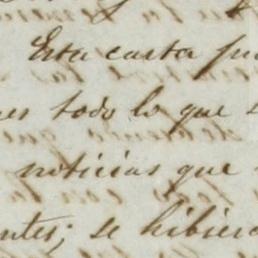 Esta carta pu
es todo lo que
noticias que
ntes; se hibier